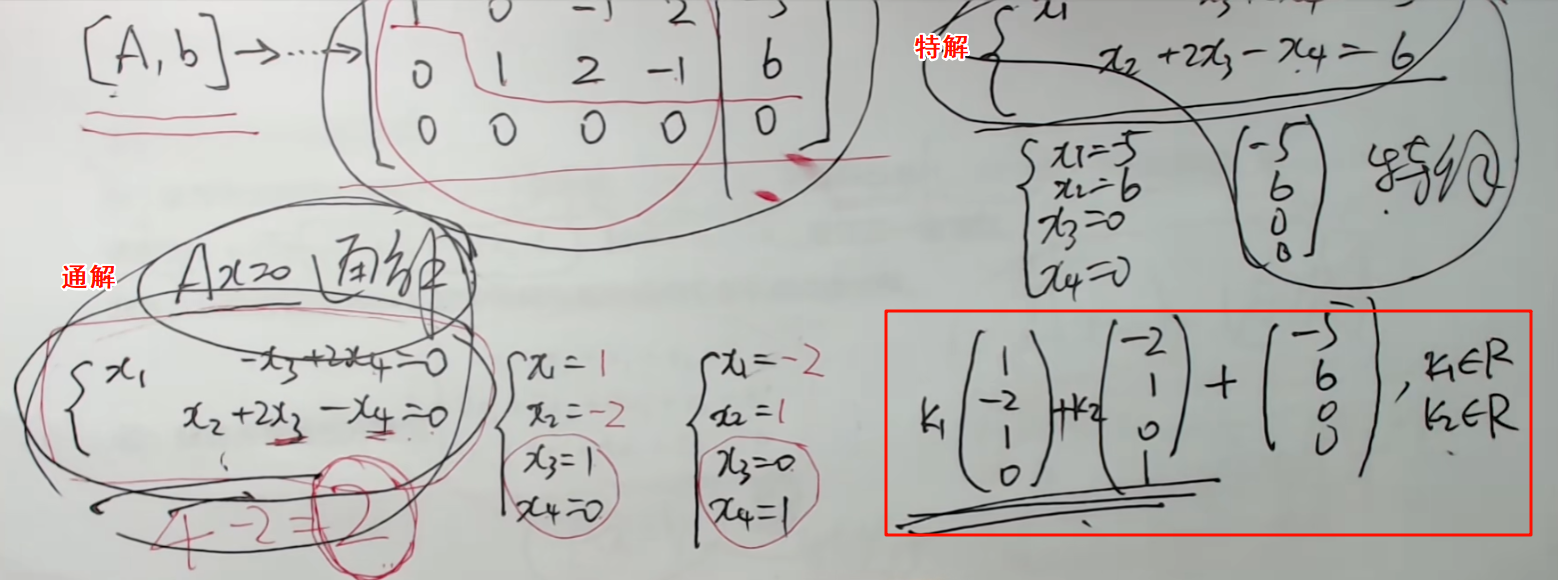 [A, b] → ⋯ →
1 0 -1 2
0 1 2 -1 6
0 0 0 0 0
特解
x₁
x₂ + 2x₃ - x₄ = 6
x₁ = -5
x₂ = 6
x₃ = 0
x₄ = 0
-5
6
0
0
通解
Ax=0
x₁ -x₃ + 2x₄ = 0
x₂ + 2x₃ - x₄ = 0
4 - 2 = 2
x₁ = 1
x₂ = -2
x₃ = 1
x₄ = 0
x₁ = -2
x₂ = 1
x₃ = 0
x₄ = 1
K₁ (1 -2 1 0) + K₂ (-2 1 0 1) + (-5 6 0 0), K₁∈R
K₂∈R